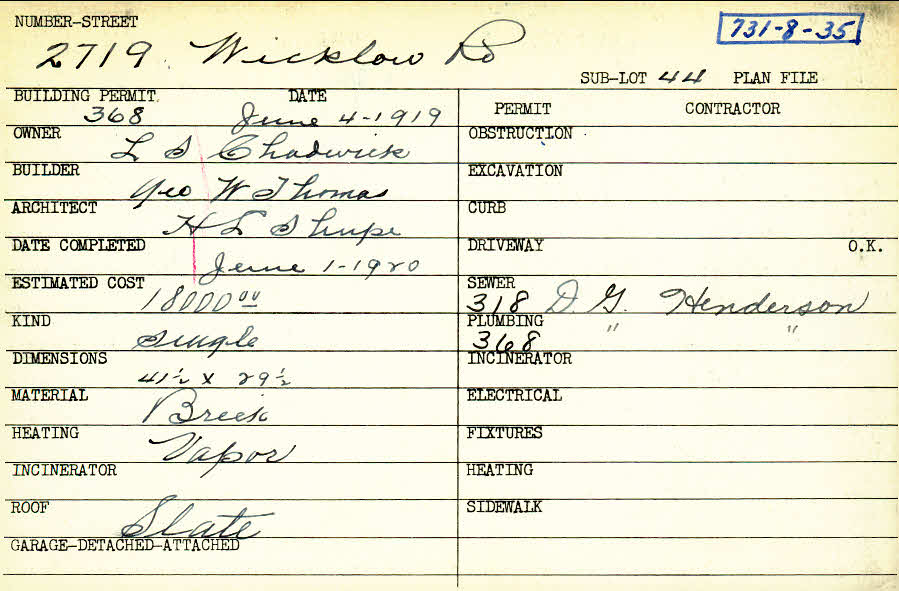 NUMBER-STREET
731-8-35
2719 Wicklow Rd
SUB-LOT 44 PLAN FILE
BUILDING PERMIT DATE
368 June 4-1919
OWNER
L S Chadwick
BUILDER
Geo W Thomas
ARCHITECT
H L Shupe
DATE COMPLETED
June 1-1920
ESTIMATED COST
18000 00
KIND
Single
DIMENSIONS
41½ x 29½
MATERIAL
Brick
HEATING
Vapor
INCINERATOR
ROOF
Slate
GARAGE-DETACHED-ATTACHED
PERMIT CONTRACTOR
OBSTRUCTION
EXCAVATION
CURB
DRIVEWAY O.K.
SEWER
318 D. G. Henderson
PLUMBING " "
368
INCINERATOR
ELECTRICAL
FIXTURES
HEATING
SIDEWALK